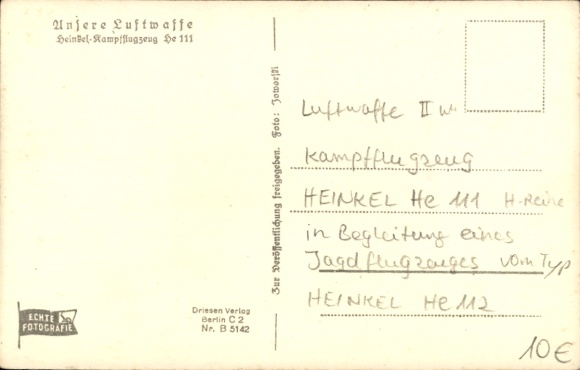 Unsere Luftwaffe
Heinkel-Kampfflugzeug He 111
Zur Veröffentlichung freigegeben. Foto: Joworski
Luftwaffe II W.
Kampfflugzeug
HEINKEL He 111 H-Reihe
in Begleitung eines
Jagdflugzeuges vom Typ
HEINKEL He 112
ECHTE
FOTOGRAFIE
Driesen Verlag
Berlin C 2
Nr. B 5142
10 €